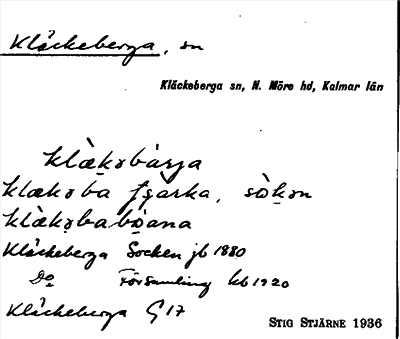 Kläckeberga, sn
Kläckeberga sn, N. Möre hd, Kalmar län
klæ̀kəbærja
klækəba çşàrka, sòkən
klæ̀kəbaboana
Kläckeberga Socken jb 1880
Do Församling kb 1920
Kläckeberga G 17
STIG STJÄRNE 1936